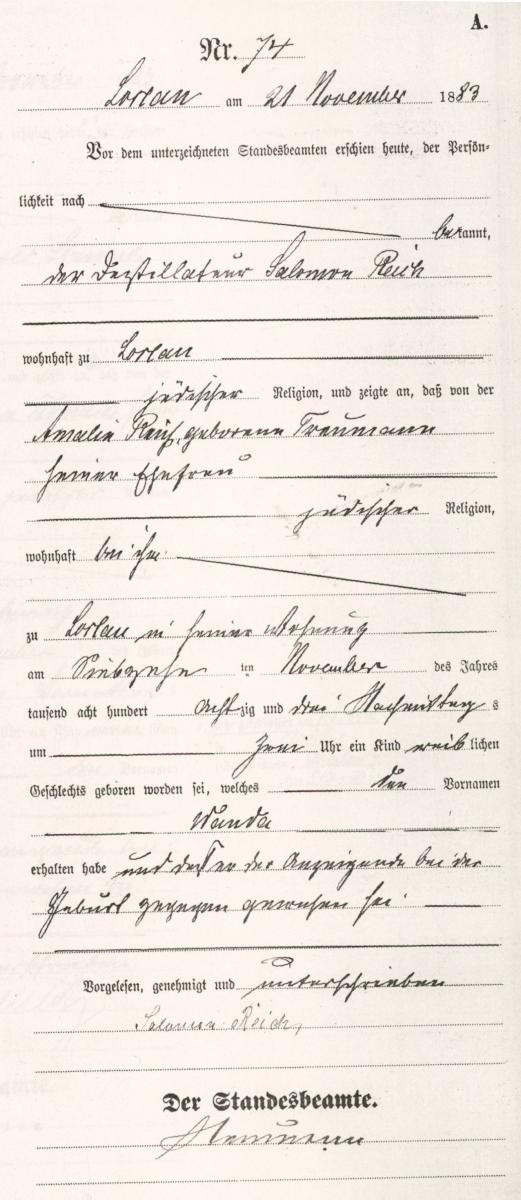 A.
Nr. 74
Lorlau am 21 November 1883
Vor dem unterzeichneten Standesbeamten erschien heute, der Persön-
lichkeit nach
bekannt,
der Destillateur Salomon Reich
wohnhaft zu Lorlau
jüdischer Religion, und zeigte an, daß von der
Amalie Reich, geborene Traumann
seiner Ehefrau
jüdischer Religion,
wohnhaft bei ihm
zu Lorlau in seiner Wohnung
am Siebzehn ten November des Jahres
tausend acht hundert acht zig und drei Nachmittag s
um zwei Uhr ein Kind weib lichen
Geschlechts geboren worden sei, welches den Vornamen
Wanda
erhalten habe und daß er der Anzeigende bei der
Geburt zugegen gewesen sei.
Vorgelesen, genehmigt und unterschrieben
Salomon Reich,
Der Standesbeamte.